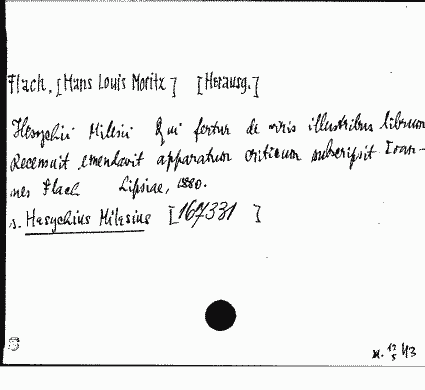 Flach, [Hans Louis Moritz] [Herausg.]
Hesychii Milesii Qui fertur de viris illustribus librum
Recensuit emendavit apparatum criticum subscripsit Ioan-
nes Flach Lipsiae, 1880.
s. Hesychius Milesius [167331 ]